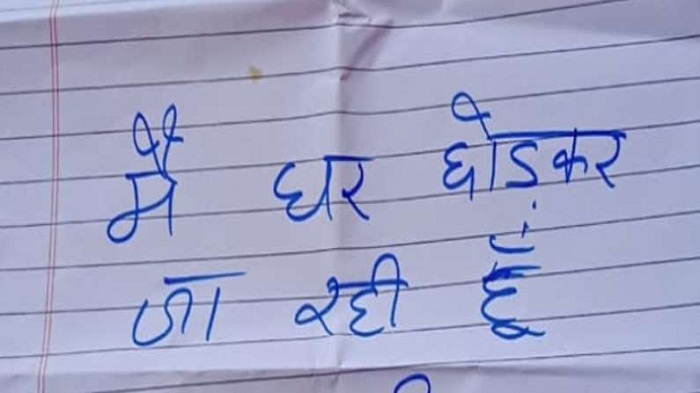 मैं घर छोडकर
जा रही हूँ